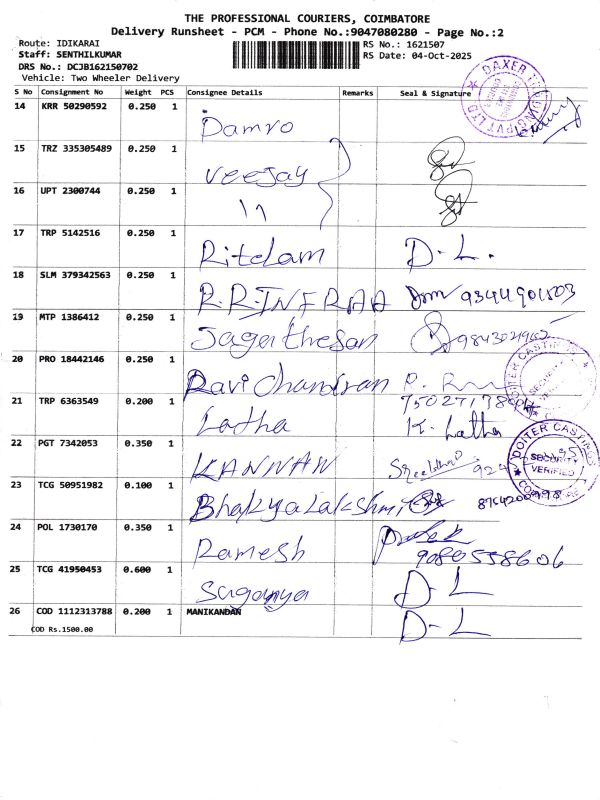 THE PROFESSIONAL COURIERS, COIMBATORE
Delivery Runsheet - PCM - Phone No.:9047080280 - Page No.:2
Route: IDIKARAI RS No.: 1621507
Staff: SENTHILKUMAR RS Date: 04-Oct-2025
DRS No.: DCJB162150702
Vehicle: Two Wheeler Delivery
S No Consignment No Weight PCS Consignee Details Remarks Seal & Signature
14 KRR 50290592 0.250 1
Damro
15 TRZ 335305489 0.250 1
Veejay
16 UPT 2300744 0.250 1
11
17 TRP 5142516 0.250 1
Ritelam D.L.
18 SLM 379342563 0.250 1
R.R.INFRAA 9344901803
19 MTP 1386412 0.250 1
Jagathesan
20 PRO 18442146 0.250 1
Ravi Chandran
21 TRP 6363549 0.200 1
Latha K. Latha
22 PGT 7342053 0.350 1
KANNAN
DOITER CASTINGS
SECURITY
VERIFIED
23 TCG 50951982 0.100 1
Bhakyalakshmi
24 POL 1730170 0.350 1
Ramesh
9080558606
25 TCG 41950453 0.600 1
Suganya D-L
26 COD 1112313788 0.200 1 MANIKANDAN D-L
COD Rs.1500.00